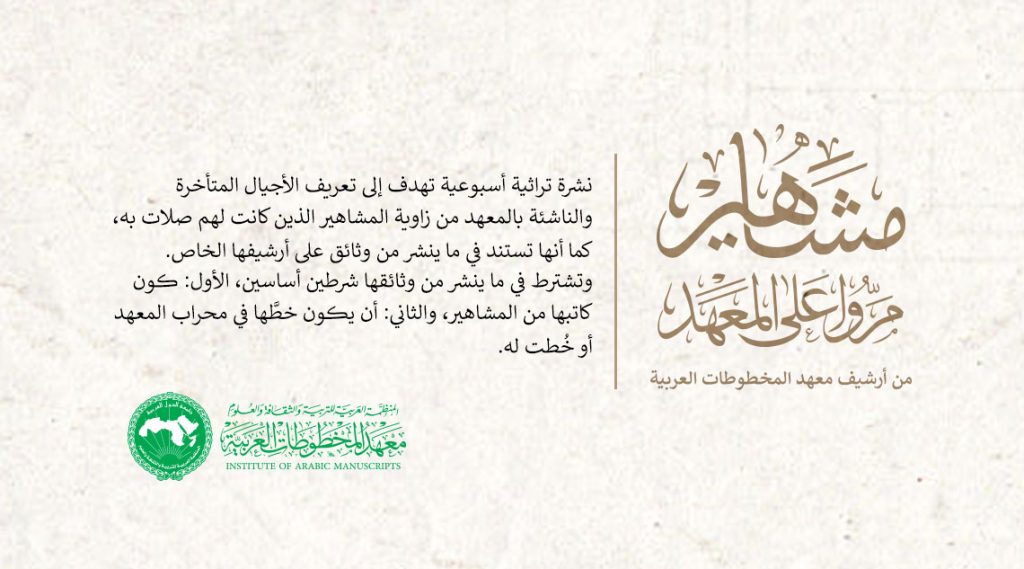 مشاهير
مرّوا على المعهد
من أرشيف معهد المخطوطات العربية
نشرة تراثية أسبوعية تهدف إلى تعريف الأجيال المتأخرة
والناشئة بالمعهد من زاوية المشاهير الذين كانت لهم صلات به،
كما أنها تستند في ما ينشر من وثائق على أرشيفها الخاص.
وتشترط في ما ينشر من وثائقها شرطين أساسين، الأول: كون
كاتبها من المشاهير، والثاني: أن يكون خطَّها في محراب المعهد
أو خُطت له.
المنظمة العربية للتربية والثقافة والعلوم
معهد المخطوطات العربية
INSTITUTE OF ARABIC MANUSCRIPTS
جامعة الدول العربية